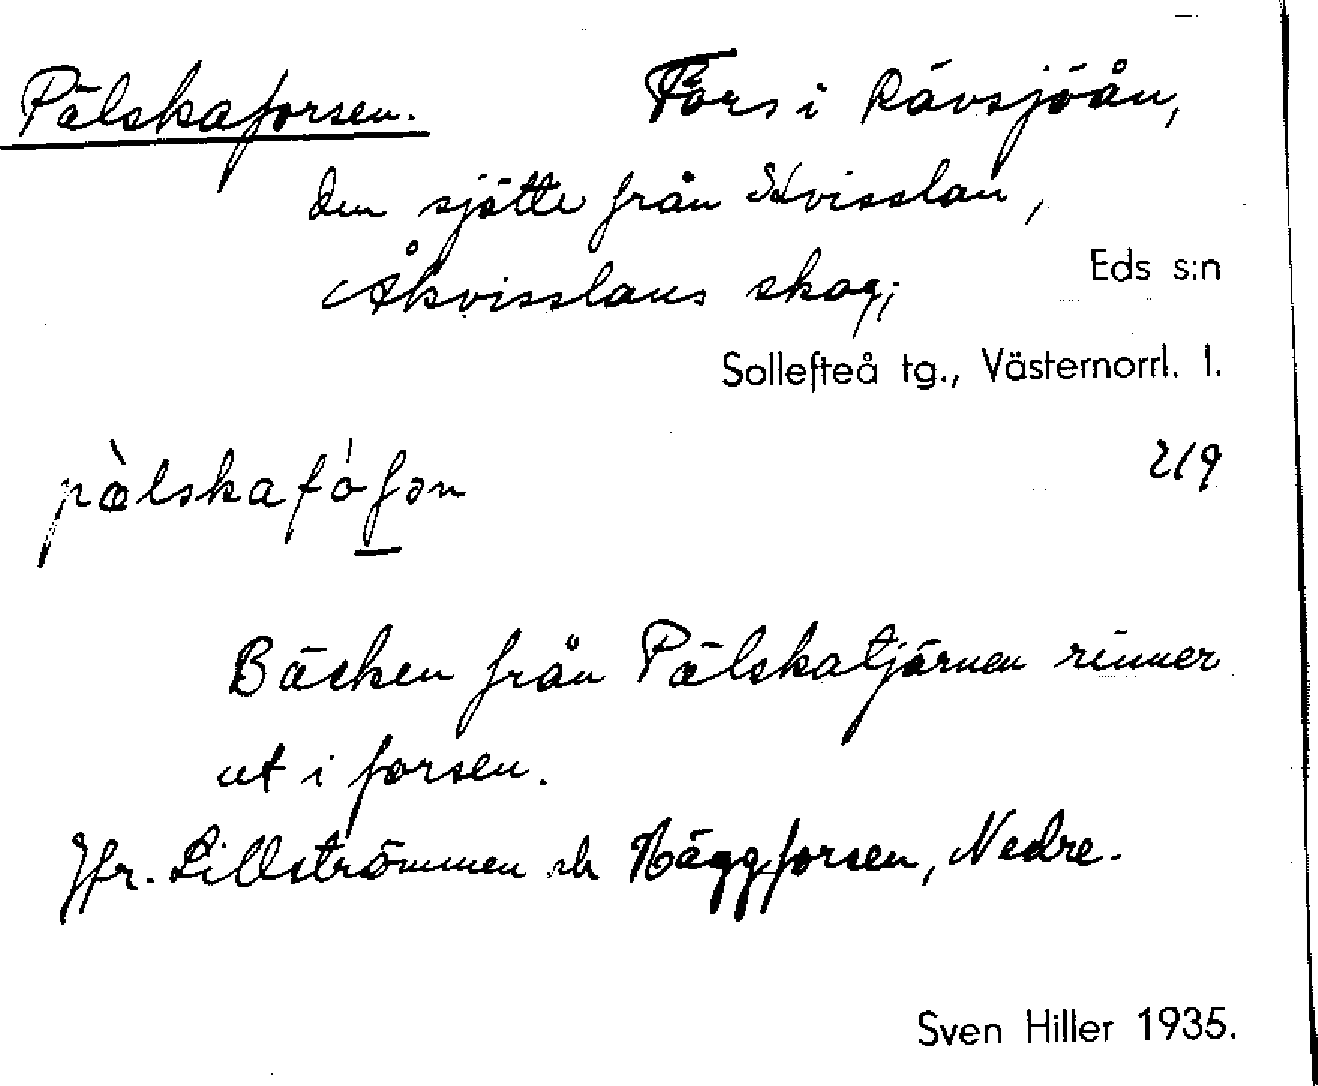 Pälskaforsen. Fors i Rävsjöån,
den sjätte från Kvisslan,
Åkvisslans skog;
Eds s:n
Sollefteå tg., Västernorrl. l.
219
pæ̀lskafȯʃən
Bäcken från Pälskatjärnen rinner
ut i forsen.
Jfr. Lillströmmen och Häggforsen, Nedre.
Sven Hiller 1935.